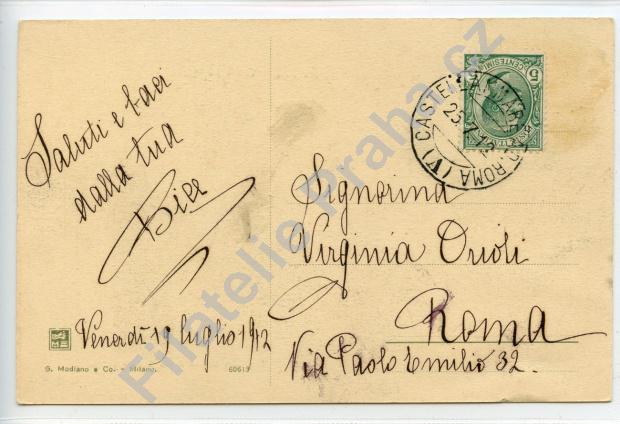 Saluti e baci
dalla tua
Bice
Venerdì 19 luglio 1912
G. Modiano e Co. - Milano.
60613
5
CENTESIMI
ROMA (V)
Signorina
Virginia Orioli
Roma
Via Paolo Emilio 32.
Filatelie Praha.cz